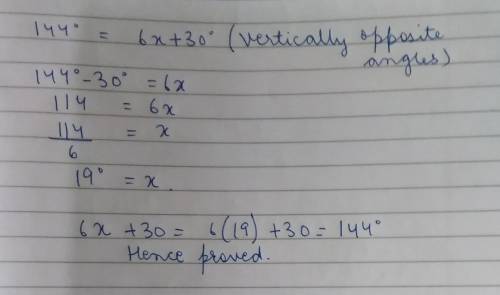 144° = 6x+30° (vertically opposite
angles)
144°-30° = 6x
114 = 6x
114/6 = x
19° = x.
6x +30 = 6(19) +30 = 144°
Hence proved.